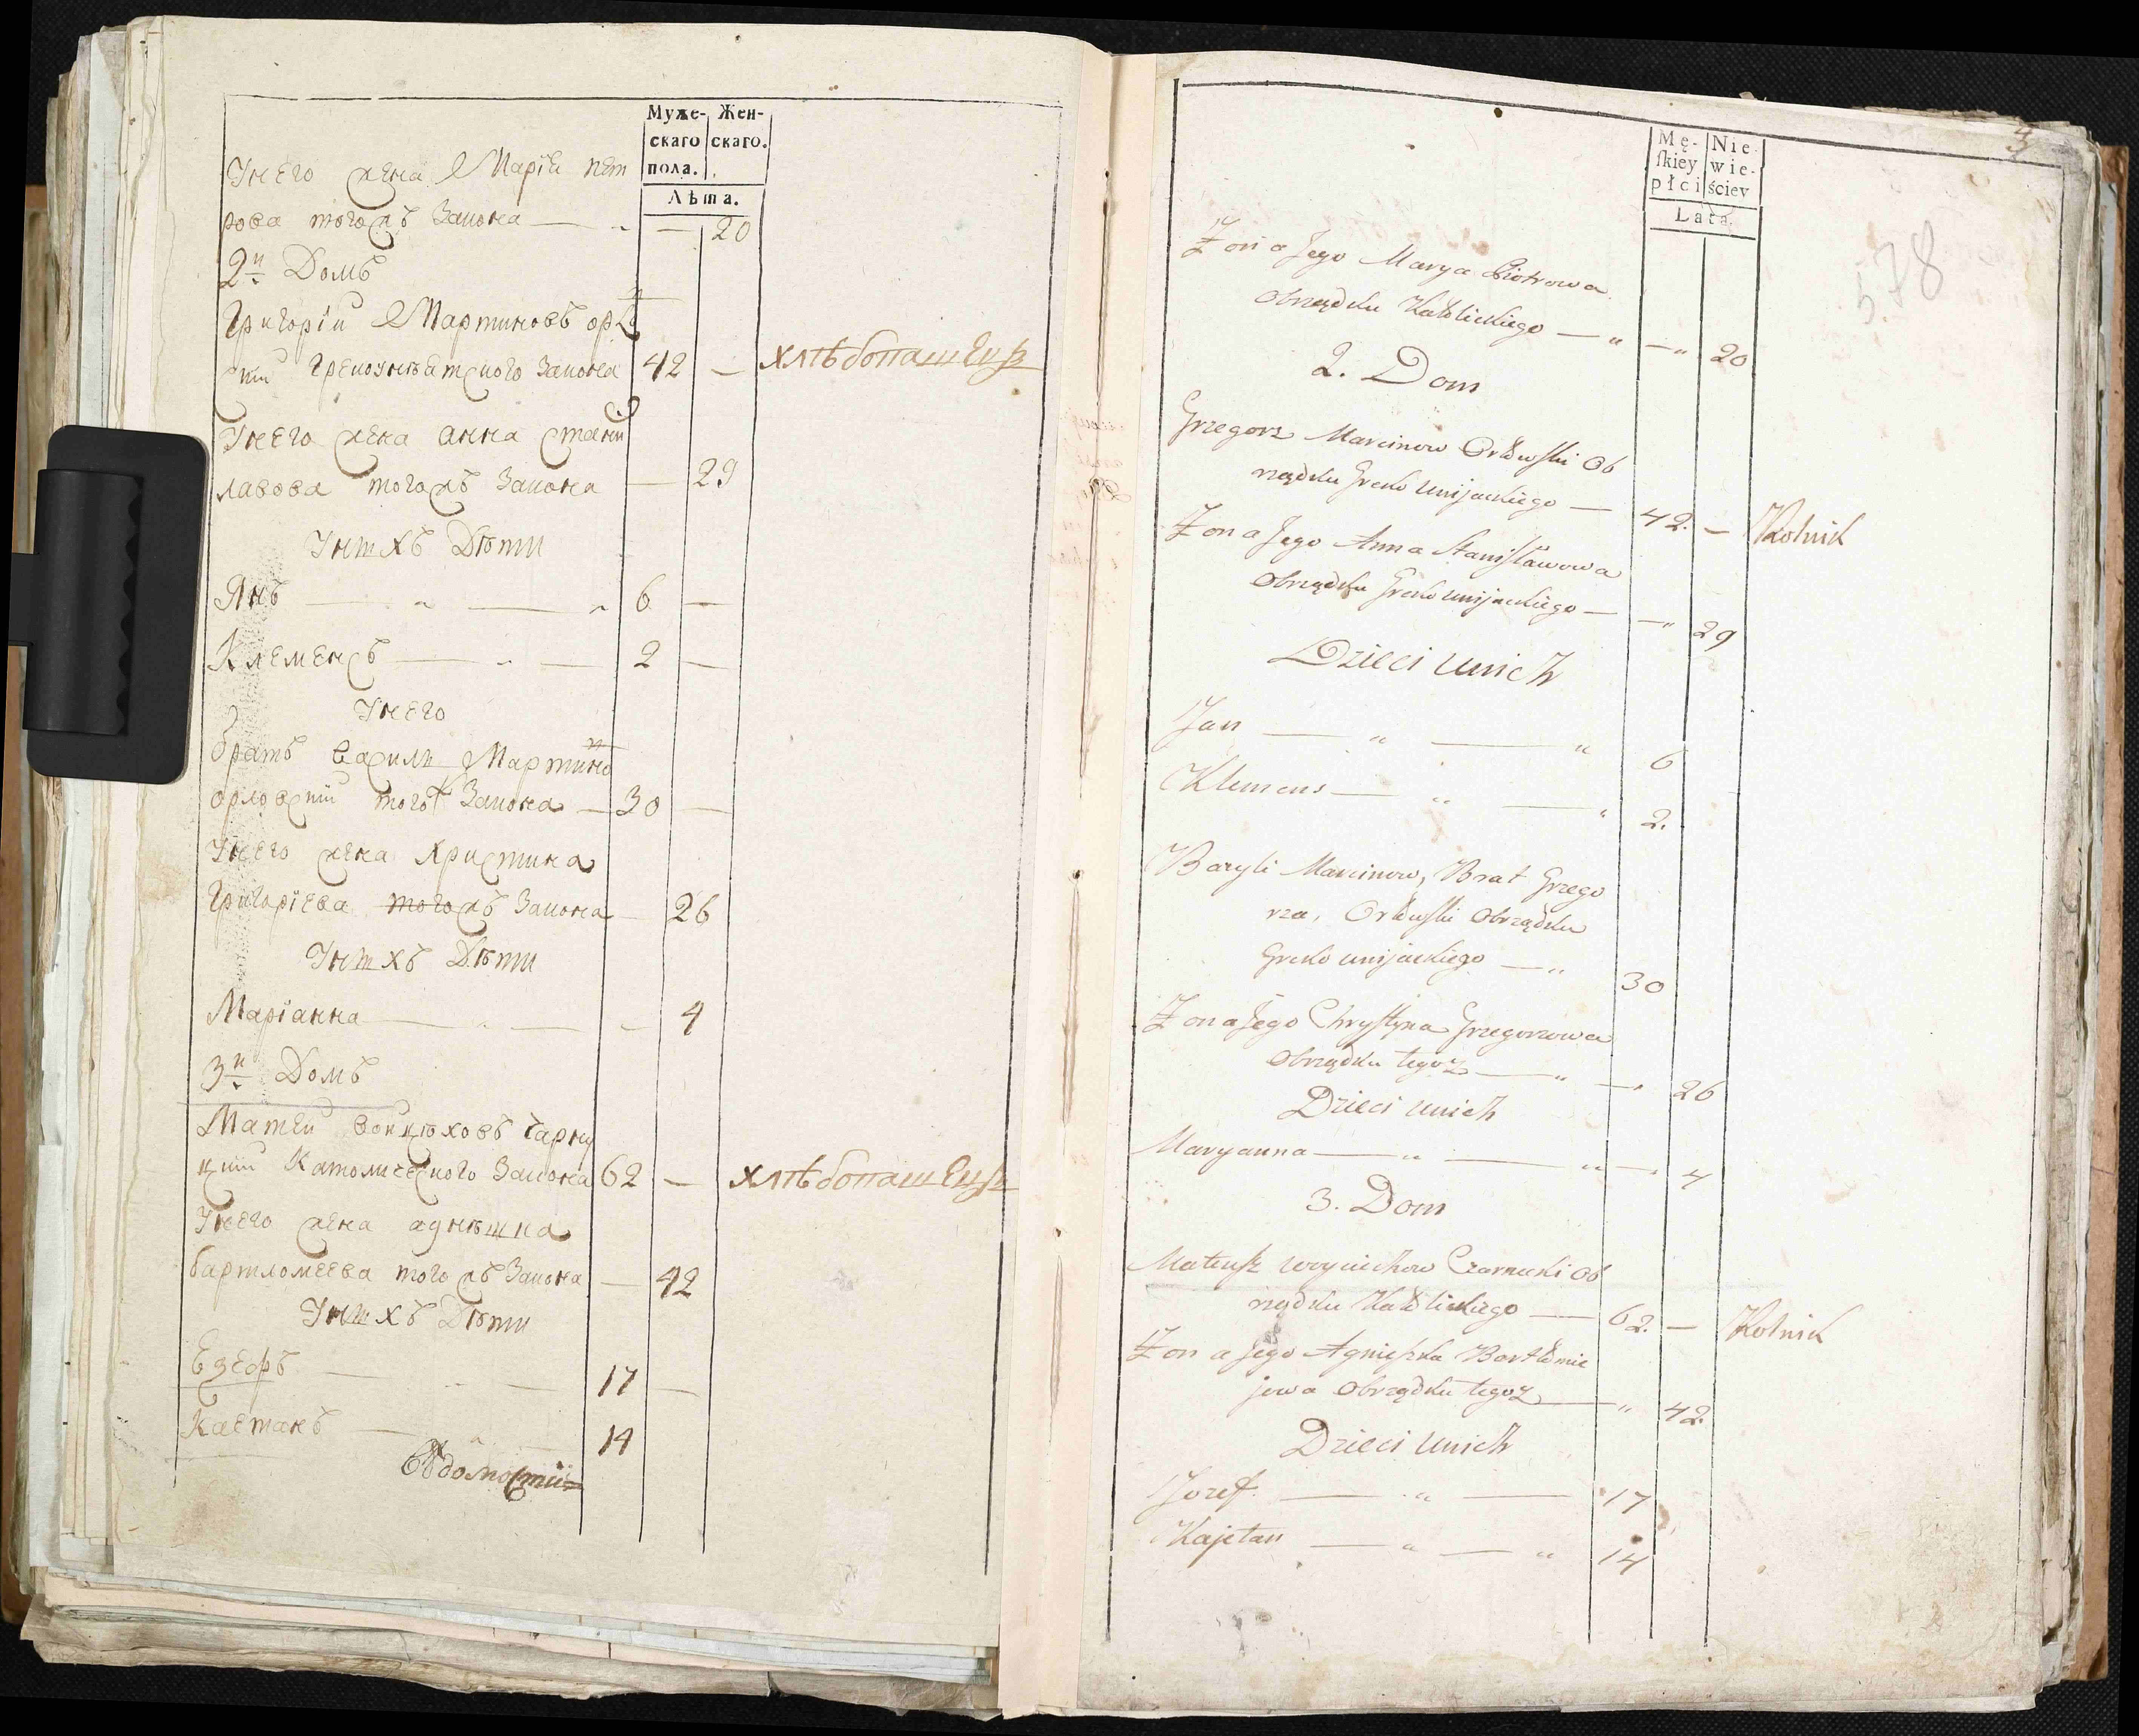 Муже-
скаго
пола.
Жен-
скаго.
Лѣта.
Унего жена Марїя пет
рова тогожъ Закона — 20
2й Домъ
Григорїи Мартиновъ орло
скїи грекоунѣатского Закона 42 — хлѣбопашецъ
Унего жена анна стани
лавова тогожъ Закона — 29
Унихъ Дѣти
Янъ — „ — „ 6 —
Клеменсъ — „ — 2 —
Унего
братъ василь Мартино
орловскїи тогож Закона — 30 —
Унего жена Христина
Григорїева тогожъ Закона — 26
Унихъ Дѣти
Марїанна — „ — 4
3й Домъ
Матеи воицѣховъ Чарну
цкїи Католического Закона 62 — хлѣбопашецъ
Унего жена агнѣшка
бартломеева тогожъ Закона — 42
Унихъ Дѣти
Езефъ — „ — 17 —
Каетанъ — „ — 14
Вѣдомости
3
578
Mę-
skiey
płci
Nie-
wie-
ściey
Lata.
Żona Jego Marya Piotrowa
Obrządku Katolickiego — „ — „ 20
2. Dom
Grzegorz Marcinow Orłowski Ob
rządku Greko Unijackiego — 42. — Rolnik
Żona Jego Anna Stanisławowa
Obrządku Greko unijackiego — — „ 29
Dzieci unich
Jan — „ — „ 6
Klemens — „ — „ 2.
Bazyli Marcinow, Brat Grzego
rza, Orłowski Obrządku
Greko unijackiego — „ 30
Żona Jego Chrystyna Grzegorzowa
Obrządku tegoż — „ — „ 26
Dzieci unich
Maryanna — „ — „ — „ 4
3. Dom
Mateusz Woyciechow Czarnucki Ob
rządku Katolickiego — 62. — Rolnik
Żona Jego Agnieszka Bartłomie
jowa Obrządku tegoż — „ 42.
Dzieci unich
Jozef — „ — 17
Kajetan — „ — „ 14